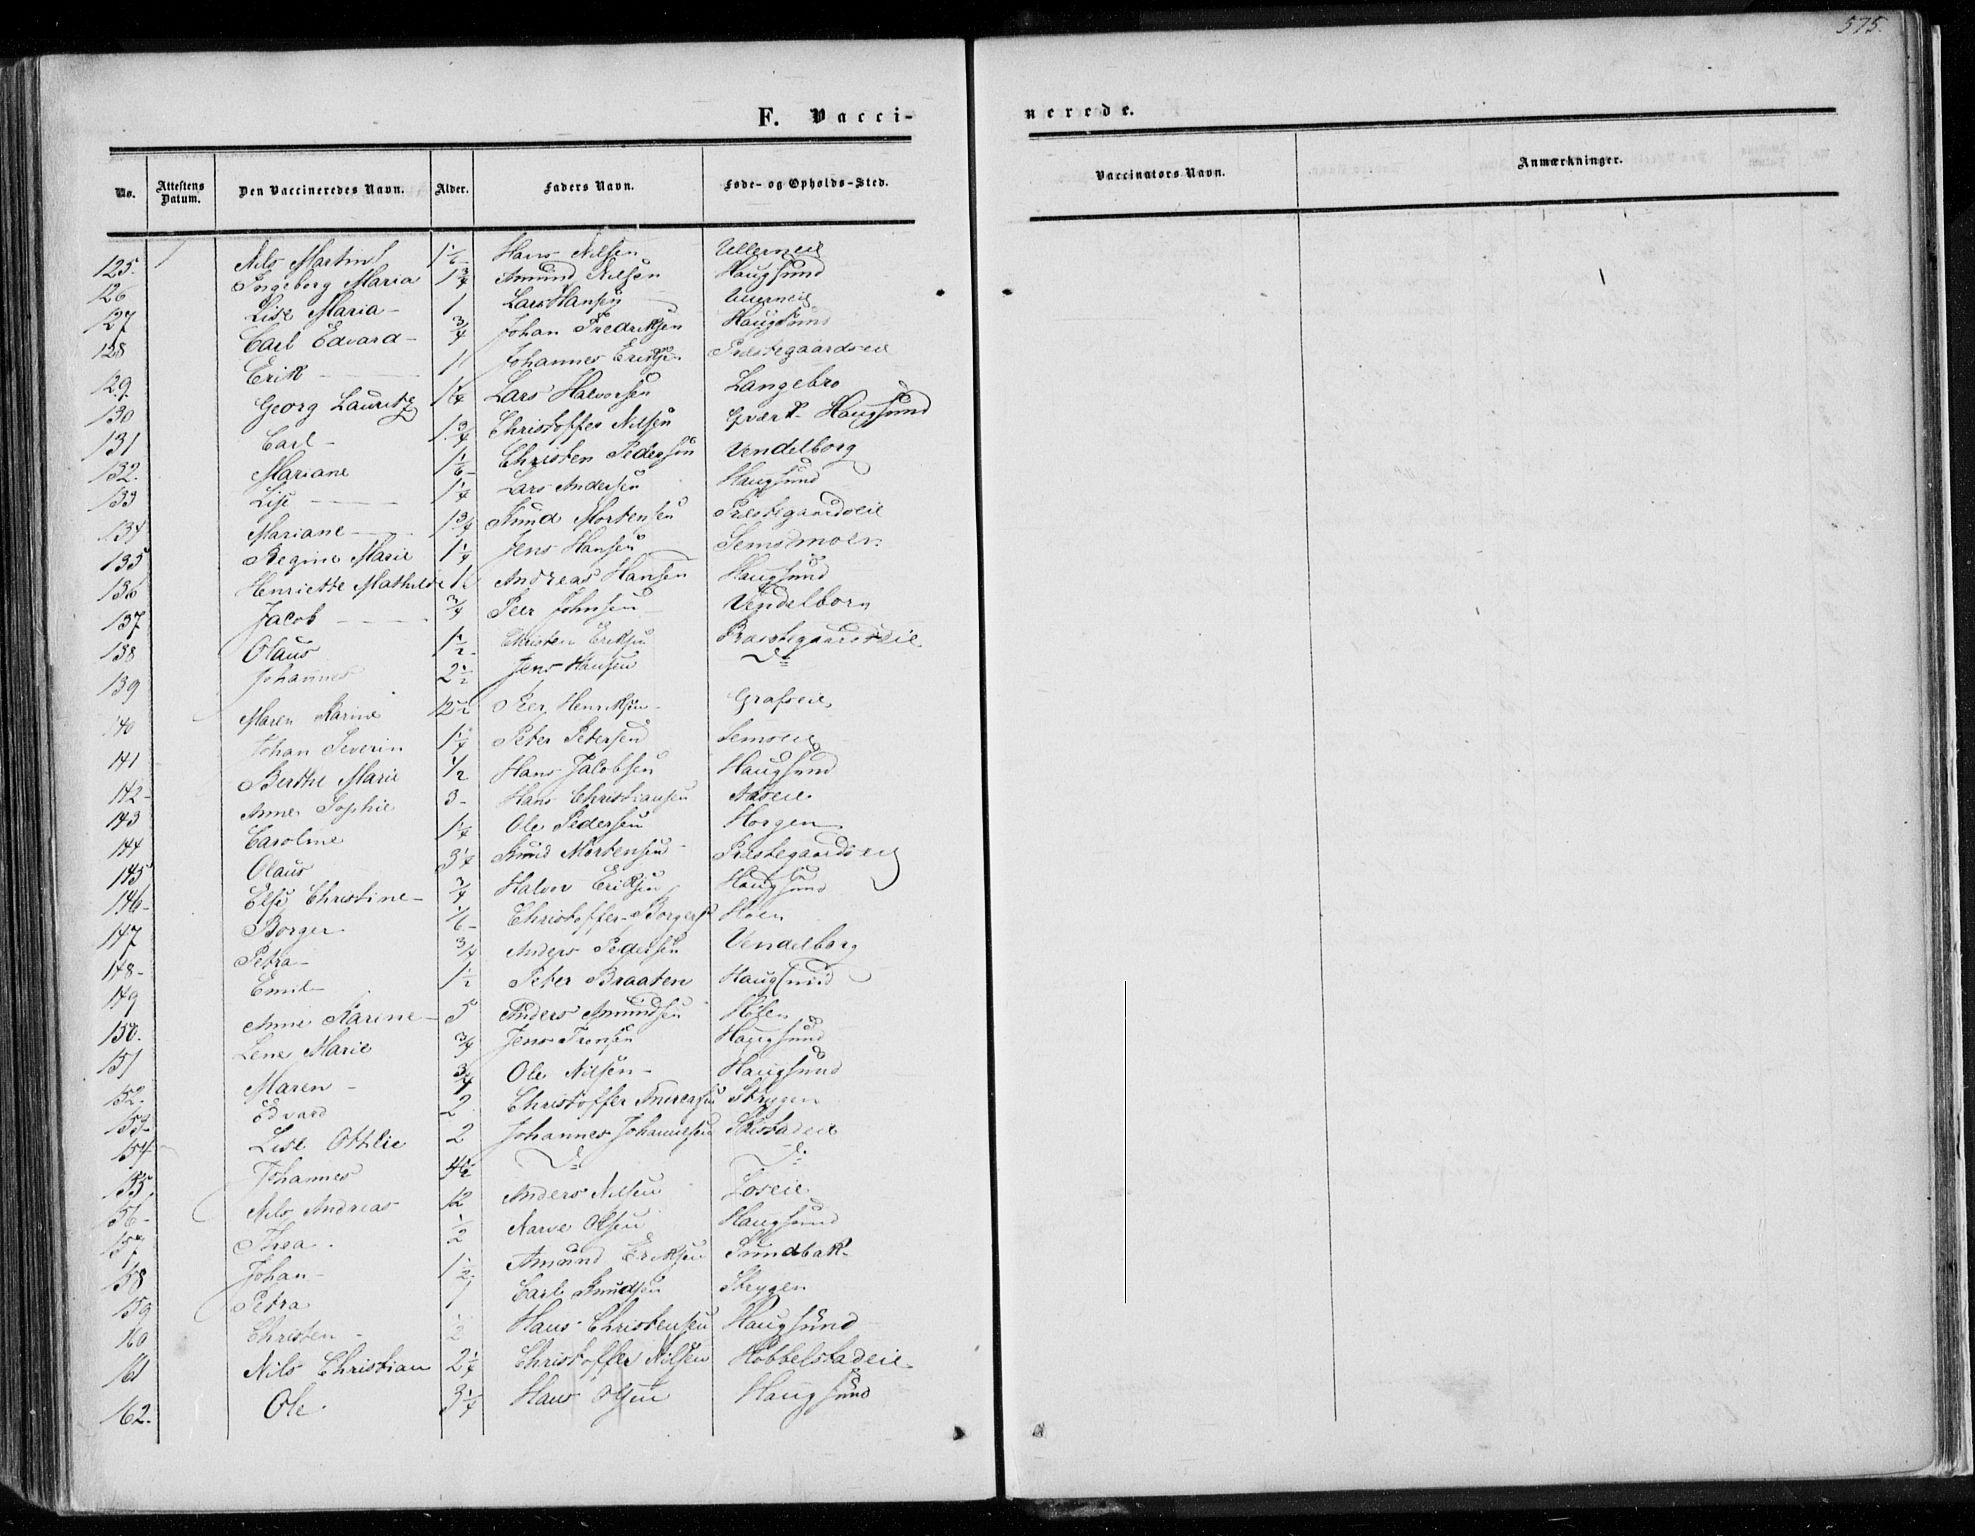 575.
F. Vacci-
nerede.
No. Attestens Datum. Den Vaccineredes Navn. Alder. Faders Navn. Føde- og Opholds-Sted.
Vaccinators Navn. Anmærkninger.
125. Nils Martin 1 1/6 Hans Nilsen Ullerneie
126 Ingeborg Maria 1 3/4 Amund Nilsen Haugsund
127 Lise Maria 1 Lars Hansen
128 Carl Edvard 3/4 Johan Fredriksen Haugsund
129 Erik Johannes Eriksen Præstegaardseie
130 Georg Lauritz 1 1/4 Lars Halvorsen Langebro
131 Carl 1 3/4 Christoffer Nilsen Haugsund
132. Mariane 1 1/6 Christen Pedersen Vendelborg
133 Lise 1 1/4 Lars Andersen Haugsund
134 Mariane 1 3/4 Knud Mortensen Præstegaardseie
135 Regine Marie 1 1/4 Jens Hansen Semsmoen
136 Henriette Mathilde Andreas Hansen Haugsund
137 Jacob 3/4 Peer Johnsen Vendelborg
138 Olaus 1 1/2 Christen Eriksen Præstegaardseie
139 Johannes 2 1/2 Jens Hansen Do
140 Maren Karine 12 1/2 Peer Henriksen Grafseie
141 Johan Severin 1 1/4 Peter Petersen Semseie
142 Berthe Marie 1/2 Hans Jacobsen Haugsund
143 Anne Sophie 3 Hans Christiansen Aaseie
144 Caroline 1 1/4 Ole Pedersen Horgen
145 Olaus 3 1/4 Knud Mortensen Præstegaardseie
146 Else Christine 3/4 Halvor Eriksen Haugsund
147 Borger 1/6 Christoffer Borgers Hoen
148 Petra 3/4 Anders Pedersen Vendelborg
149 Emil 1 1/2 Peter Braaten Haugsund
150. Anne Karine 5 Anders Amundsen Hoen
151 Lene Marie 3/4 Jens Jensen Haugsund
152. Maren 3/4 Ole Nilsen Haugsund
153 Edvard 2 Christoffer Andreasen Strygen
154 Lise Ottilie 2 Johannes Johannesen
155 Johannes 4 1/2 Do Do
156 Nils Andreas 12 Anders Nilsen Loseie
157 Thea 1/2 Narve Olsen Haugsund
158 Johan 1 1/2 Amund Eriksen Sundbak
159 Petra Carl Knudsen Strygen
160 Christen 1/2 Hans Christensen Haugsund
161 Nils Christian 2 1/4 Christoffer Nilsen Hobbelstadeie
162. Ole 3 1/4 Hans Olsen Haugsund